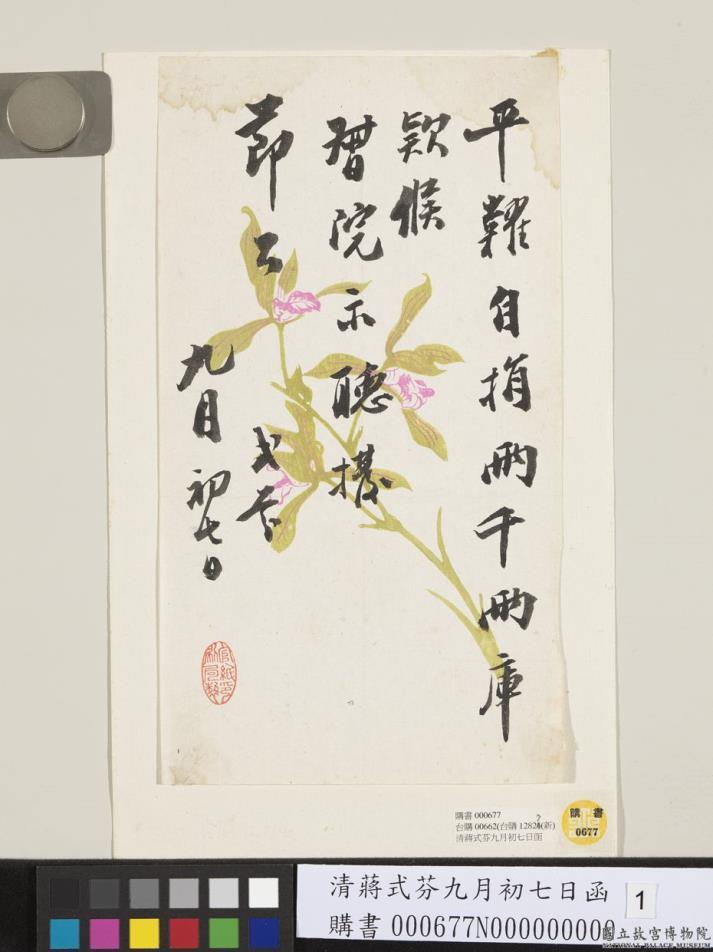 平糶自捐兩千兩庫
款候
督院示聽撥
節公 式芬
九月初七日
購書 000677
台購 00662(台購 1282(新)
清蔣式芬九月初七日函
購書
0677
清蔣式芬九月初七日函
1
購書 000677N000000000
國立故宮博物院
NATIONAL PALACE MUSEUM